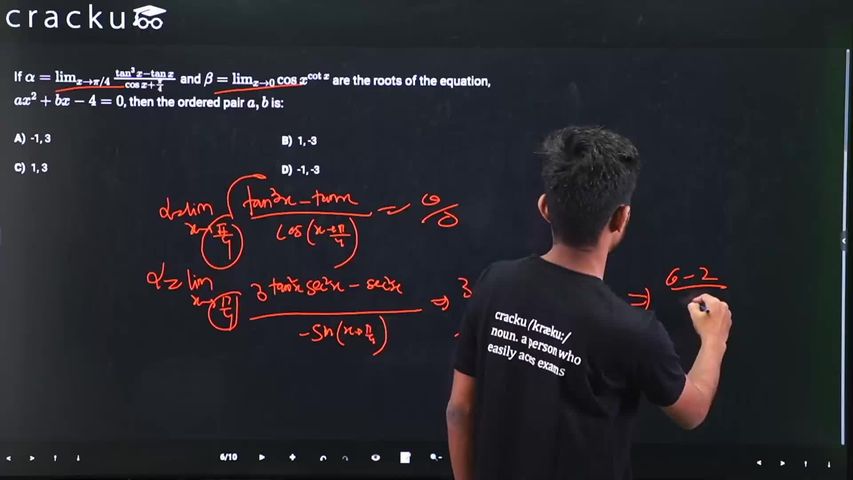 cracku
If α = lim_{x→π/4} (tan³ x − tan x)/(cos x + π/4) and β = lim_{x→0} cos x^{cot x} are the roots of the equation,
ax² + bx − 4 = 0, then the ordered pair a, b is:
A) -1, 3 B) 1, -3
C) 1, 3 D) -1, -3
α = lim_{x→π/4} (tan³x − tanx)/(cos(x+π/4)) = 0/0
α = lim_{x→π/4} (3 tan²x sec²x − sec²x)/(−sin(x+π/4)) ⇒ 3 ⇒ 6−2
cracku /kræku:/
noun. a person who
easily aces exams
6/10